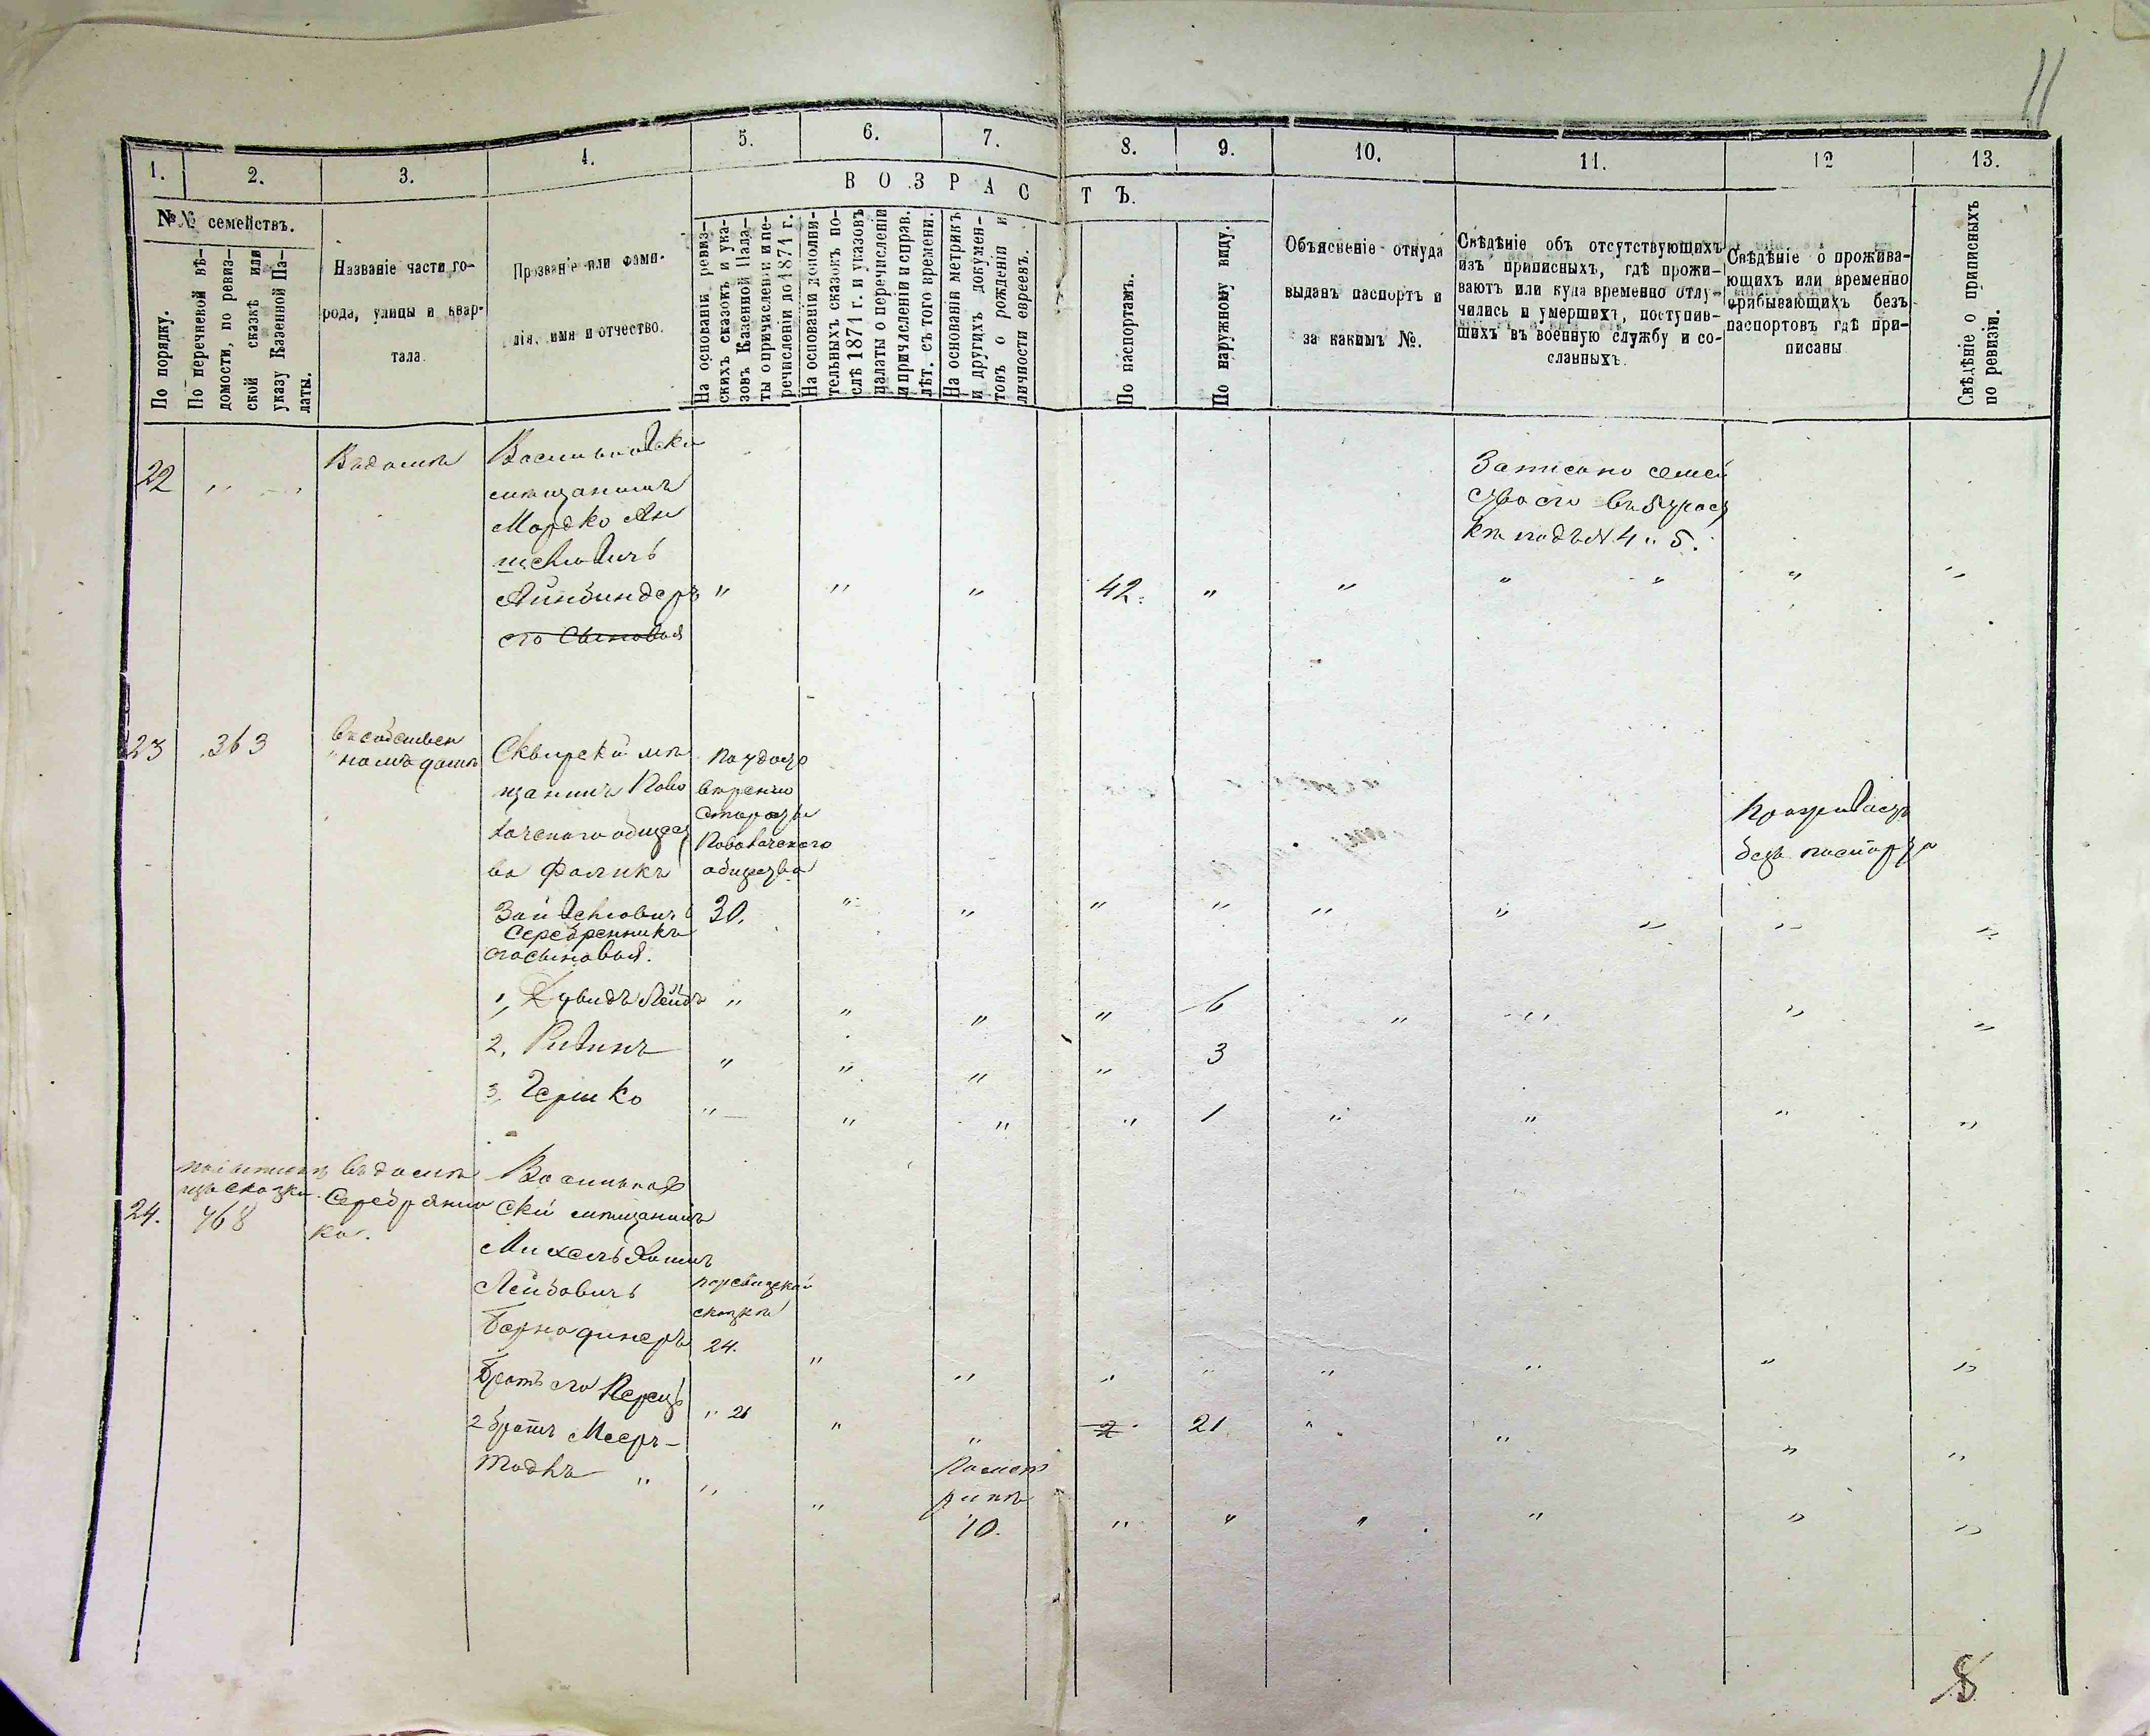 11
1. 2. 3. 4. 5. 6. 7. 8. 9. 10. 11. 12 13.
№№ семействъ.
По порядку.
По перечневой вѣ-
домости, по ревиз-
ской сказкѣ или
указу Казенной Па-
латы.
Названіе части го-
рода, улицы и квар-
тала.
Прозваніе или фами-
лія, имя и отчество.
ВОЗРАСТЪ.
На основаніи ревиз-
скихъ сказокъ и ука-
зовъ Казенной Пала-
ты о причисленіи и пе-
речисленіи до 1874 г.
На основаніи дополни-
тельныхъ сказокъ по-
слѣ 1874 г. и указовъ
палаты о перечисленіи
и причисленіи и справ.
лѣт. съ того времени.
На основаніи метрикъ
и другихъ докумен-
товъ о рожденіи и
личности евреевъ.
По паспортамъ.
По наружному виду.
Объясненіе откуда
выданъ паспортъ и
за какимъ №.
Свѣдѣніе объ отсутствующихъ
изъ приписныхъ, гдѣ прожи-
ваютъ или куда временно отлу-
чились и умершихъ, поступив-
шихъ въ военную службу и со-
сланныхъ.
Свѣдѣніе о прожива-
ющихъ или временно
прибывающихъ безъ
паспортовъ гдѣ при-
писаны
Свѣдѣніе о приписныхъ
по ревизіи.
22 " " Васильковски
мѣщанинъ
Мордко Ан
шелювичъ
Айнбиндеръ " " " 42. " " " " " "
его сыновья
Записано семей
ство его
подъ № 4 и 5.
23 363 въ собствен
номъ домѣ
Сквирскій мѣ
щанинъ Паво
лочскаго общест
ва Фаликъ
Зайвелювичъ
Серебренникъ
его сыновья.
По удосто
вѣренію
старосты
Паволочского
общества
30. " " " " " " " " "
Проживаетъ
безъ паспорта
1, Дувидъ Лейбъ " " " " 6 " " " "
2, Рувинъ " " " " 3
3, Гершко " " " " 1 " " " "
24. 468
сказки.
въ домѣ
Серебрянни
ка.
Васильков
скій мѣщанинъ
Михель Хаимъ
Лейбовичъ
Бернадинеръ
ревизской
сказкѣ
24. " " " " " " " "
Братъ его Перецъ " 21 " " 2 21 " " " "
2 братъ Мееръ-
Тодль " " "
По мет
рикѣ
10. " " " " " "
8